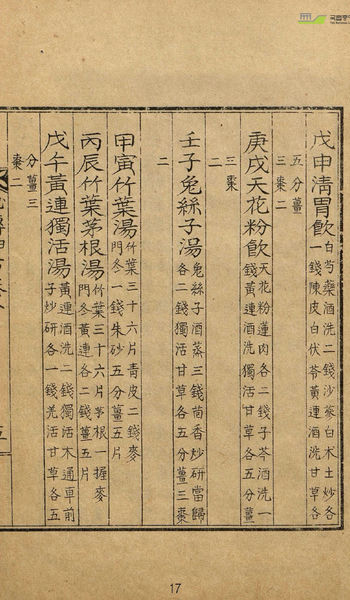 戊申淸胃飮白芍藥酒洗二錢沙蔘白朮土炒各
一錢陳皮白茯苓黃連酒洗甘草各
五分薑
三棗二
庚戌天花粉飮天花粉蓮肉各二錢子芩酒洗一
錢黃連酒洗獨活甘草各五分薑
三棗
二
壬子兔絲子湯兔絲子酒蒸三錢茴香炒硏當歸
各二錢獨活甘草各五分薑三棗
二
甲寅竹葉湯竹葉三十六片靑皮二錢麥
門冬一錢朱砂五分薑五片
丙辰竹葉茅根湯竹葉三十六片茅根一握麥
門冬黃連各二錢薑五片
戊午黃連獨活湯黃連酒洗二錢獨活木通車前
子炒硏各一錢羌活甘草各五
分薑三
棗二
五
17